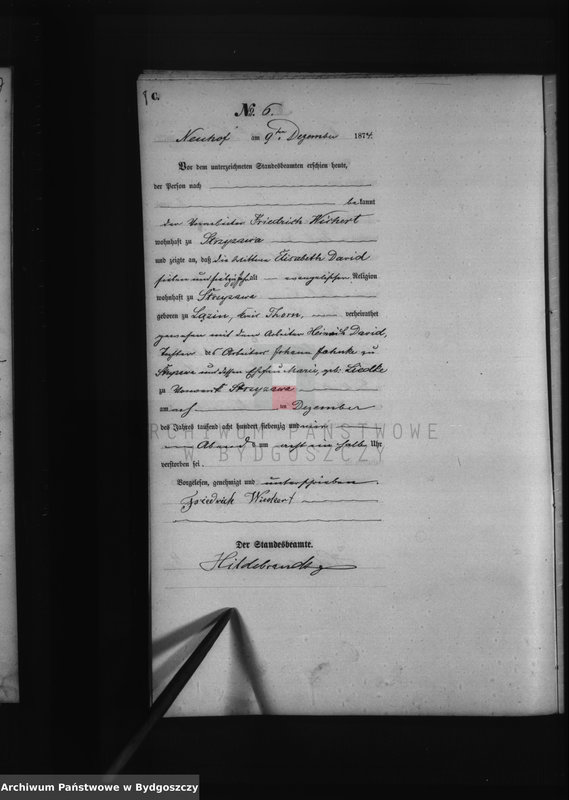 C.
No. 6.
Neuhof am 9ten Dezember 1874.
Vor dem unterzeichneten Standesbeamten erschien heute,
der Person nach
bekannt
der Vorarbeiter Friedrich Wichert
wohnhaft zu Strzyzawa
und zeigte an, daß die Wittwe Elisabeth David
sieben und alt evangelischer Religion
wohnhaft zu Strzyzawa
geboren zu Lazin, Kreis Thorn, verheirathet
gewesen mit dem Arbeiter Heinrich David,
Tochter des Arbeiters Johann Jahnke zu
und dessen Ehefrau Marie, geb: Liedtke
zu Vorwerk Strzyzawa
am ten Dezember
des Jahres tausend acht hundert siebenzig und vier
Abends um ein halb Uhr
verstorben sei.
Vorgelesen, genehmigt und unterschrieben
Friedrich Wichert
Der Standesbeamte.
Hildebrandt
ARCHIWUM PAŃSTWOWE
W BYDGOSZCZY
Archiwum Państwowe w Bydgoszczy